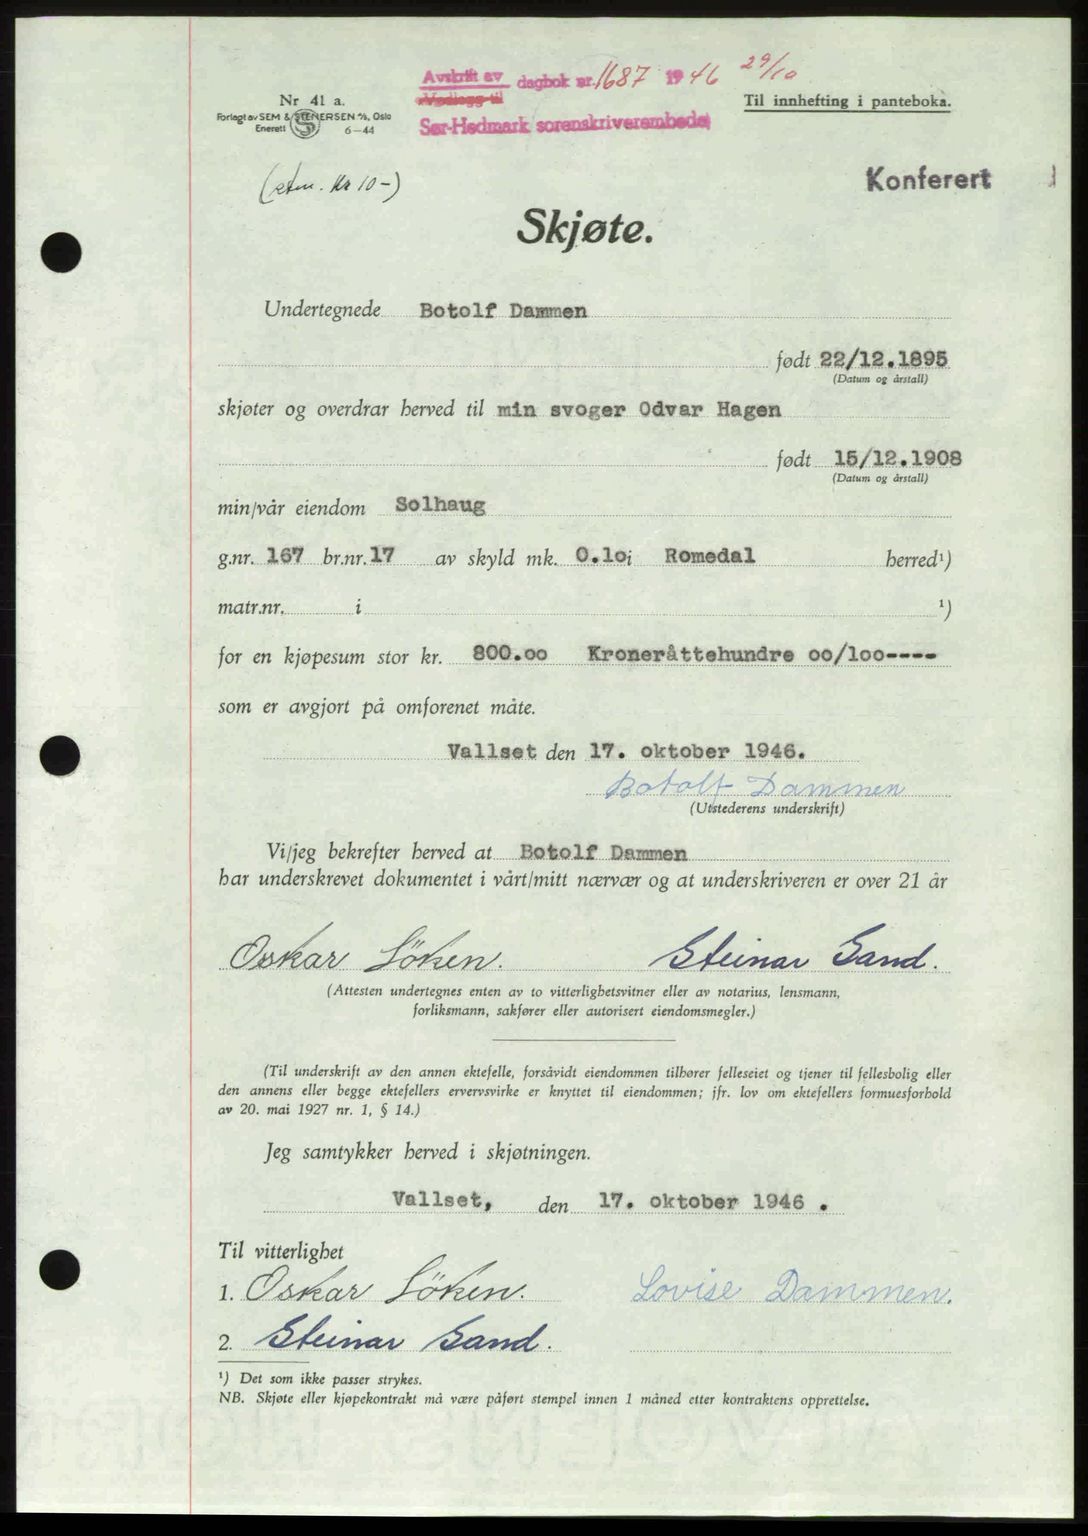 Avskrift av dagbok nr. 1687 1946 29/10
Vedlegg til
Sør-Hedmark sorenskriverembede
Nr 41 a.
Forlagt av SEM & STENERSEN A/S, Oslo
Enerett 6—44
Til innhefting i panteboka.
Kr 10-)
Konferert
Skjøte.
Undertegnede Botolf Dammen
født 22/12.1895
(Datum og årstall)
skjøter og overdrar herved til min svoger Odvar Hagen
født 15/12.1908
(Datum og årstall)
min/vår eiendom Solhaug
g.nr. 167 br.nr. 17 av skyld mk. 0.10 i Romedal herred¹)
matr.nr. i ¹)
for en kjøpesum stor kr. 800.oo Kroneråttehundre oo/loo----
som er avgjort på omforenet måte.
Vallset den 17. oktober 1946.
Botolf Dammen
(Utstederens underskrift)
Vi/jeg bekrefter herved at Botolf Dammen
har underskrevet dokumentet i vårt/mitt nærvær og at underskriveren er over 21 år
Oskar Löken. Steinar Sand.
(Attesten undertegnes enten av to vitterlighetsvitner eller av notarius, lensmann,
forliksmann, sakfører eller autorisert eiendomsmegler.)
(Til underskrift av den annen ektefelle, forsåvidt eiendommen tilhører felleseiet og tjener til fellesbolig eller
den annens eller begge ektefellers ervervsvirke er knyttet til eiendommen; jfr. lov om ektefellers formuesforhold
av 20. mai 1927 nr. 1, § 14.)
Jeg samtykker herved i skjøtningen.
Vallset, den 17. oktober 1946 .
Til vitterlighet
1. Oskar Löken. Lovise Dammen.
2. Steinar Sand.
¹) Det som ikke passer strykes.
NB. Skjøte eller kjøpekontrakt må være påført stempel innen 1 måned etter kontraktens opprettelse.